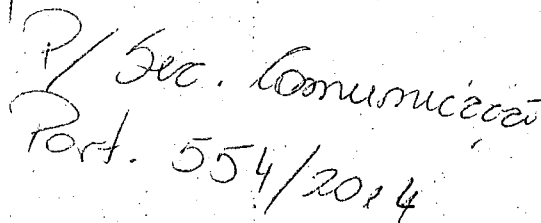 P/ Sec. Comunicação
Port. 554/2014